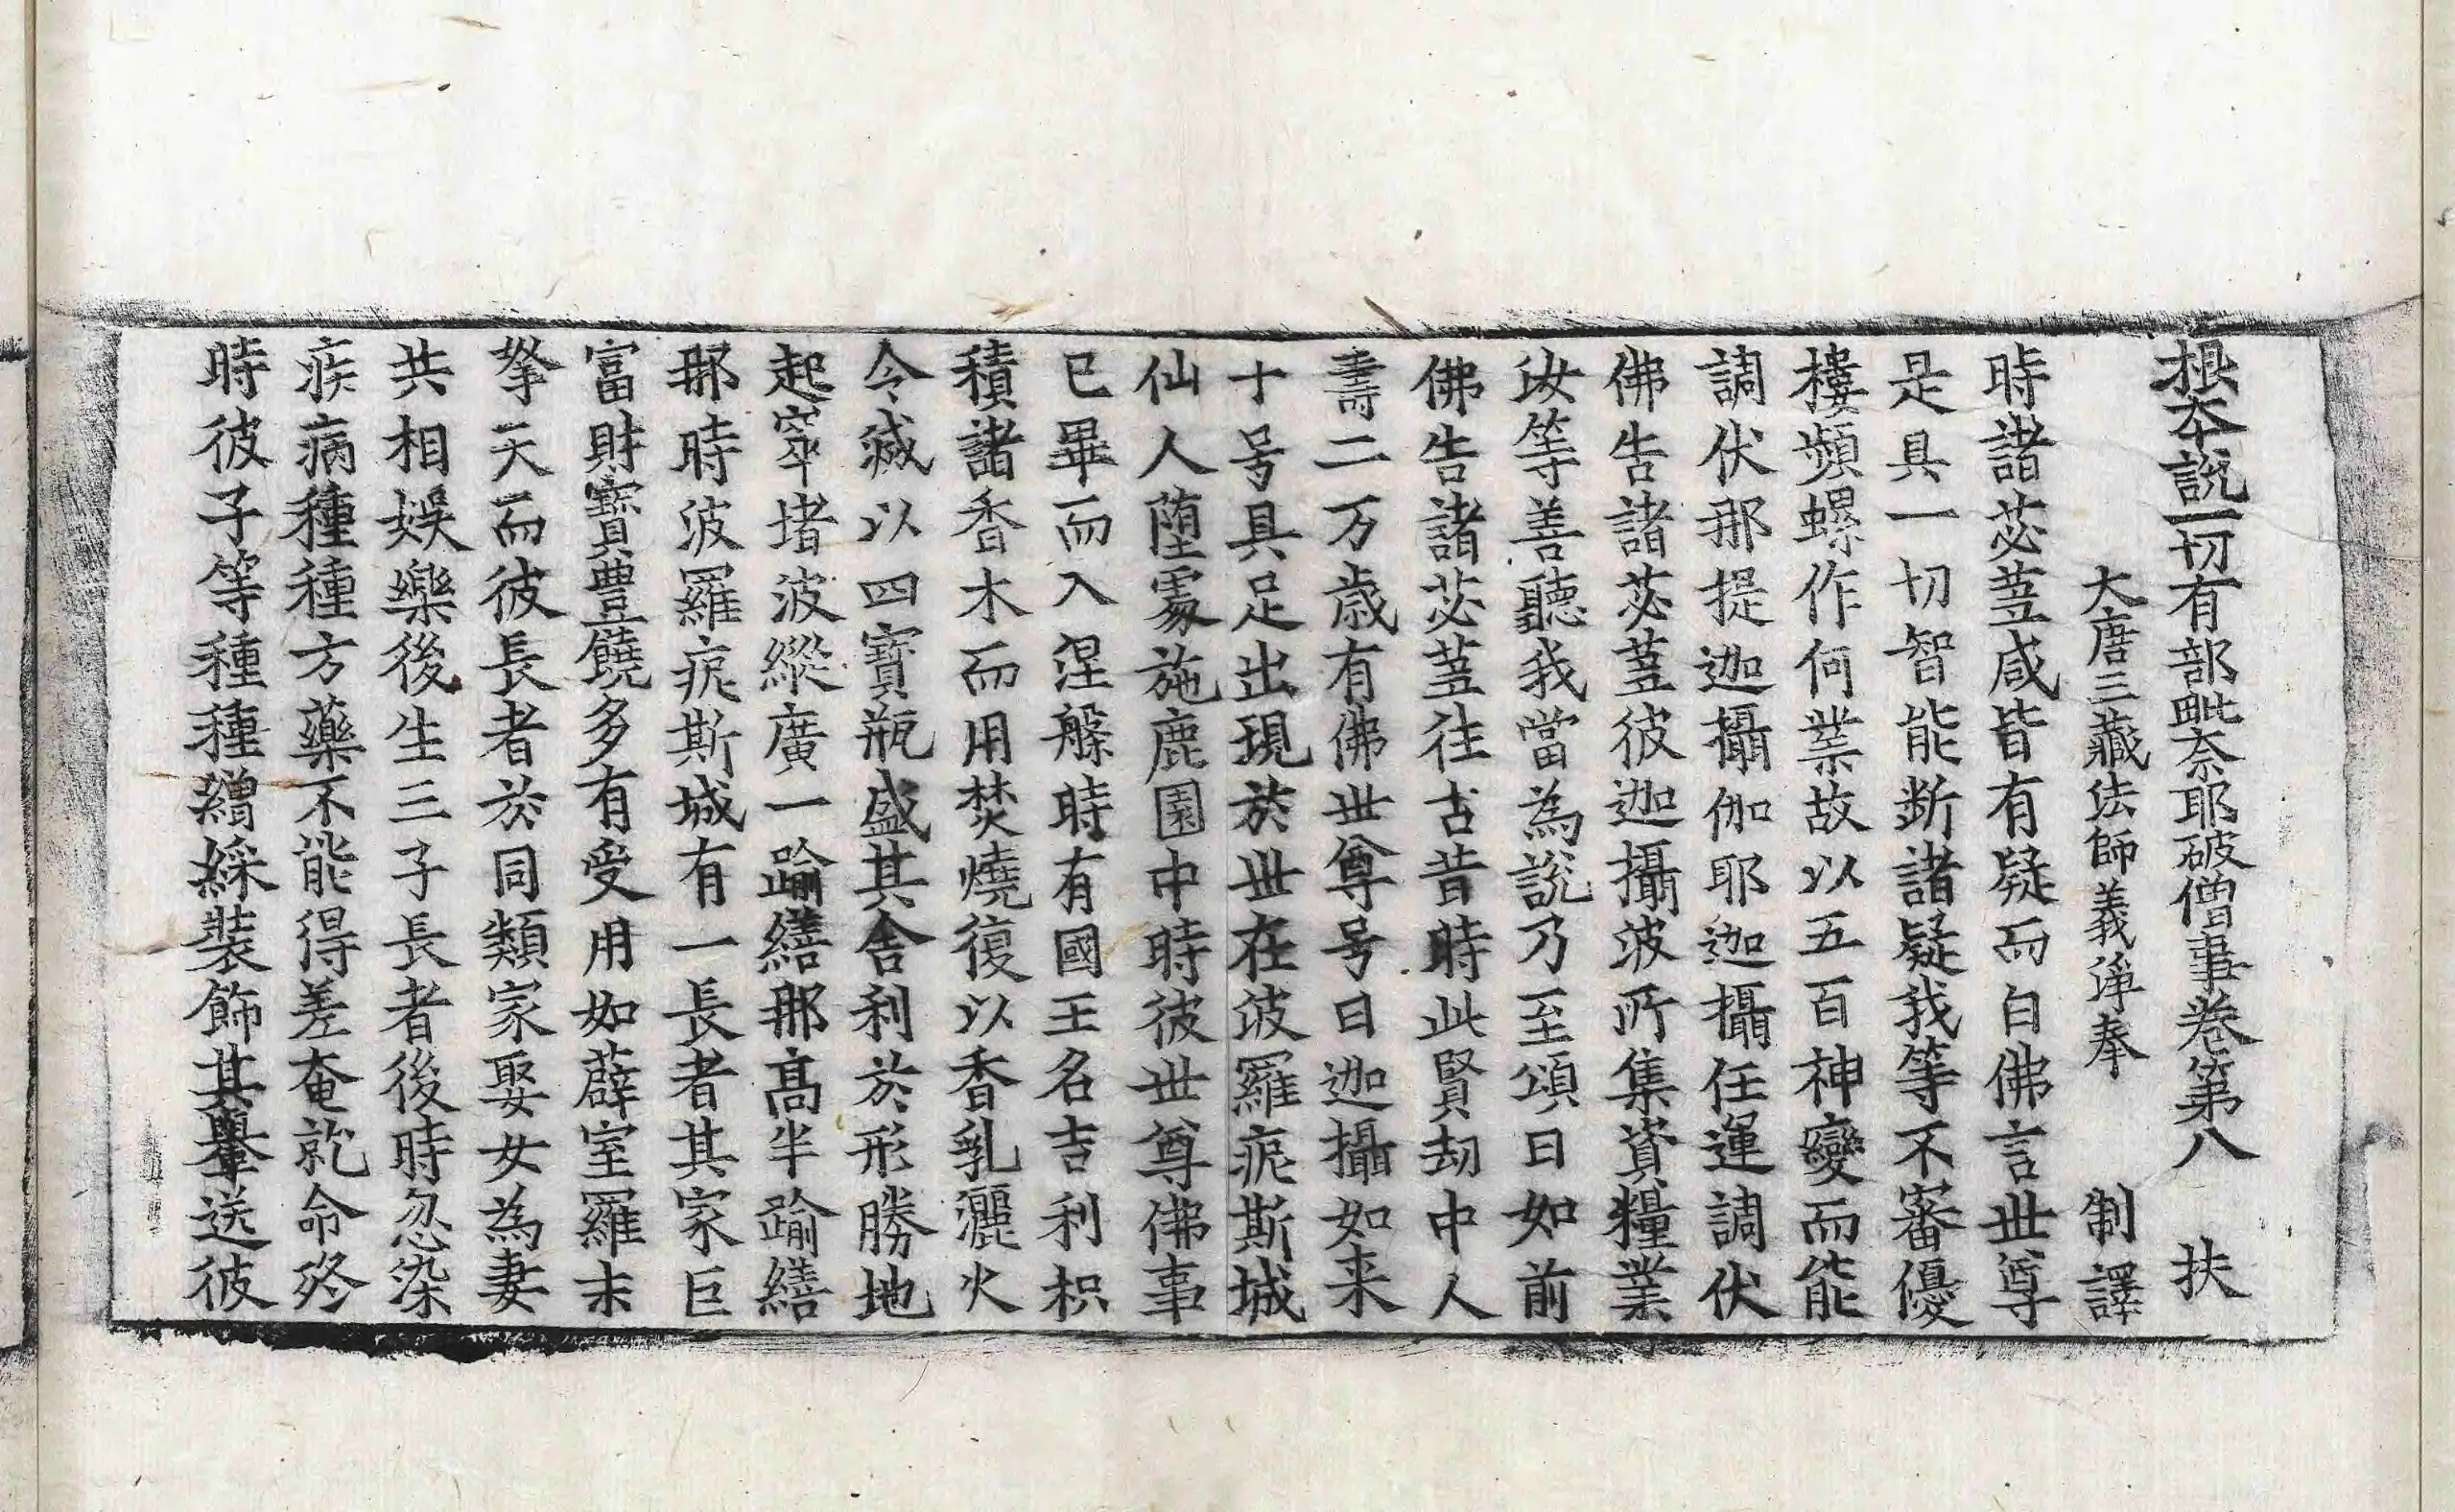 根本說一切有部毗奈耶破僧事卷第八 扶
大唐三藏法師義淨奉 制譯
時諸苾蒭咸皆有疑而白佛言世尊
是具一切智能斷諸疑我等不審優
樓頻螺作何業故以五百神變而能
調伏那提迦攝伽耶迦攝任運調伏
佛告諸苾蒭彼迦攝波所集資糧業
汝等善聽我當為說乃至頌曰如前
佛告諸苾蒭往古昔時此賢劫中人
壽二万歲有佛世尊号曰迦攝如来
十号具足出現於世在波羅痆斯城
仙人墮處施鹿園中時彼世尊佛事
已畢而入涅槃時有國王名吉利枳
積諸香木而用焚燒復以香乳灑火
令滅以四寶瓶盛其舍利於形勝地
起窣堵波縱廣一踰繕那高半踰繕
那時波羅痆斯城有一長者其家巨
富財寶豊饒多有受用如薜室羅末
拏天而彼長者於同類家娶女為妻
共相娛樂後生三子長者後時忽染
疾病種種方藥不能得差奄就命終
時彼子等種種繒綵裝飾其轝送彼